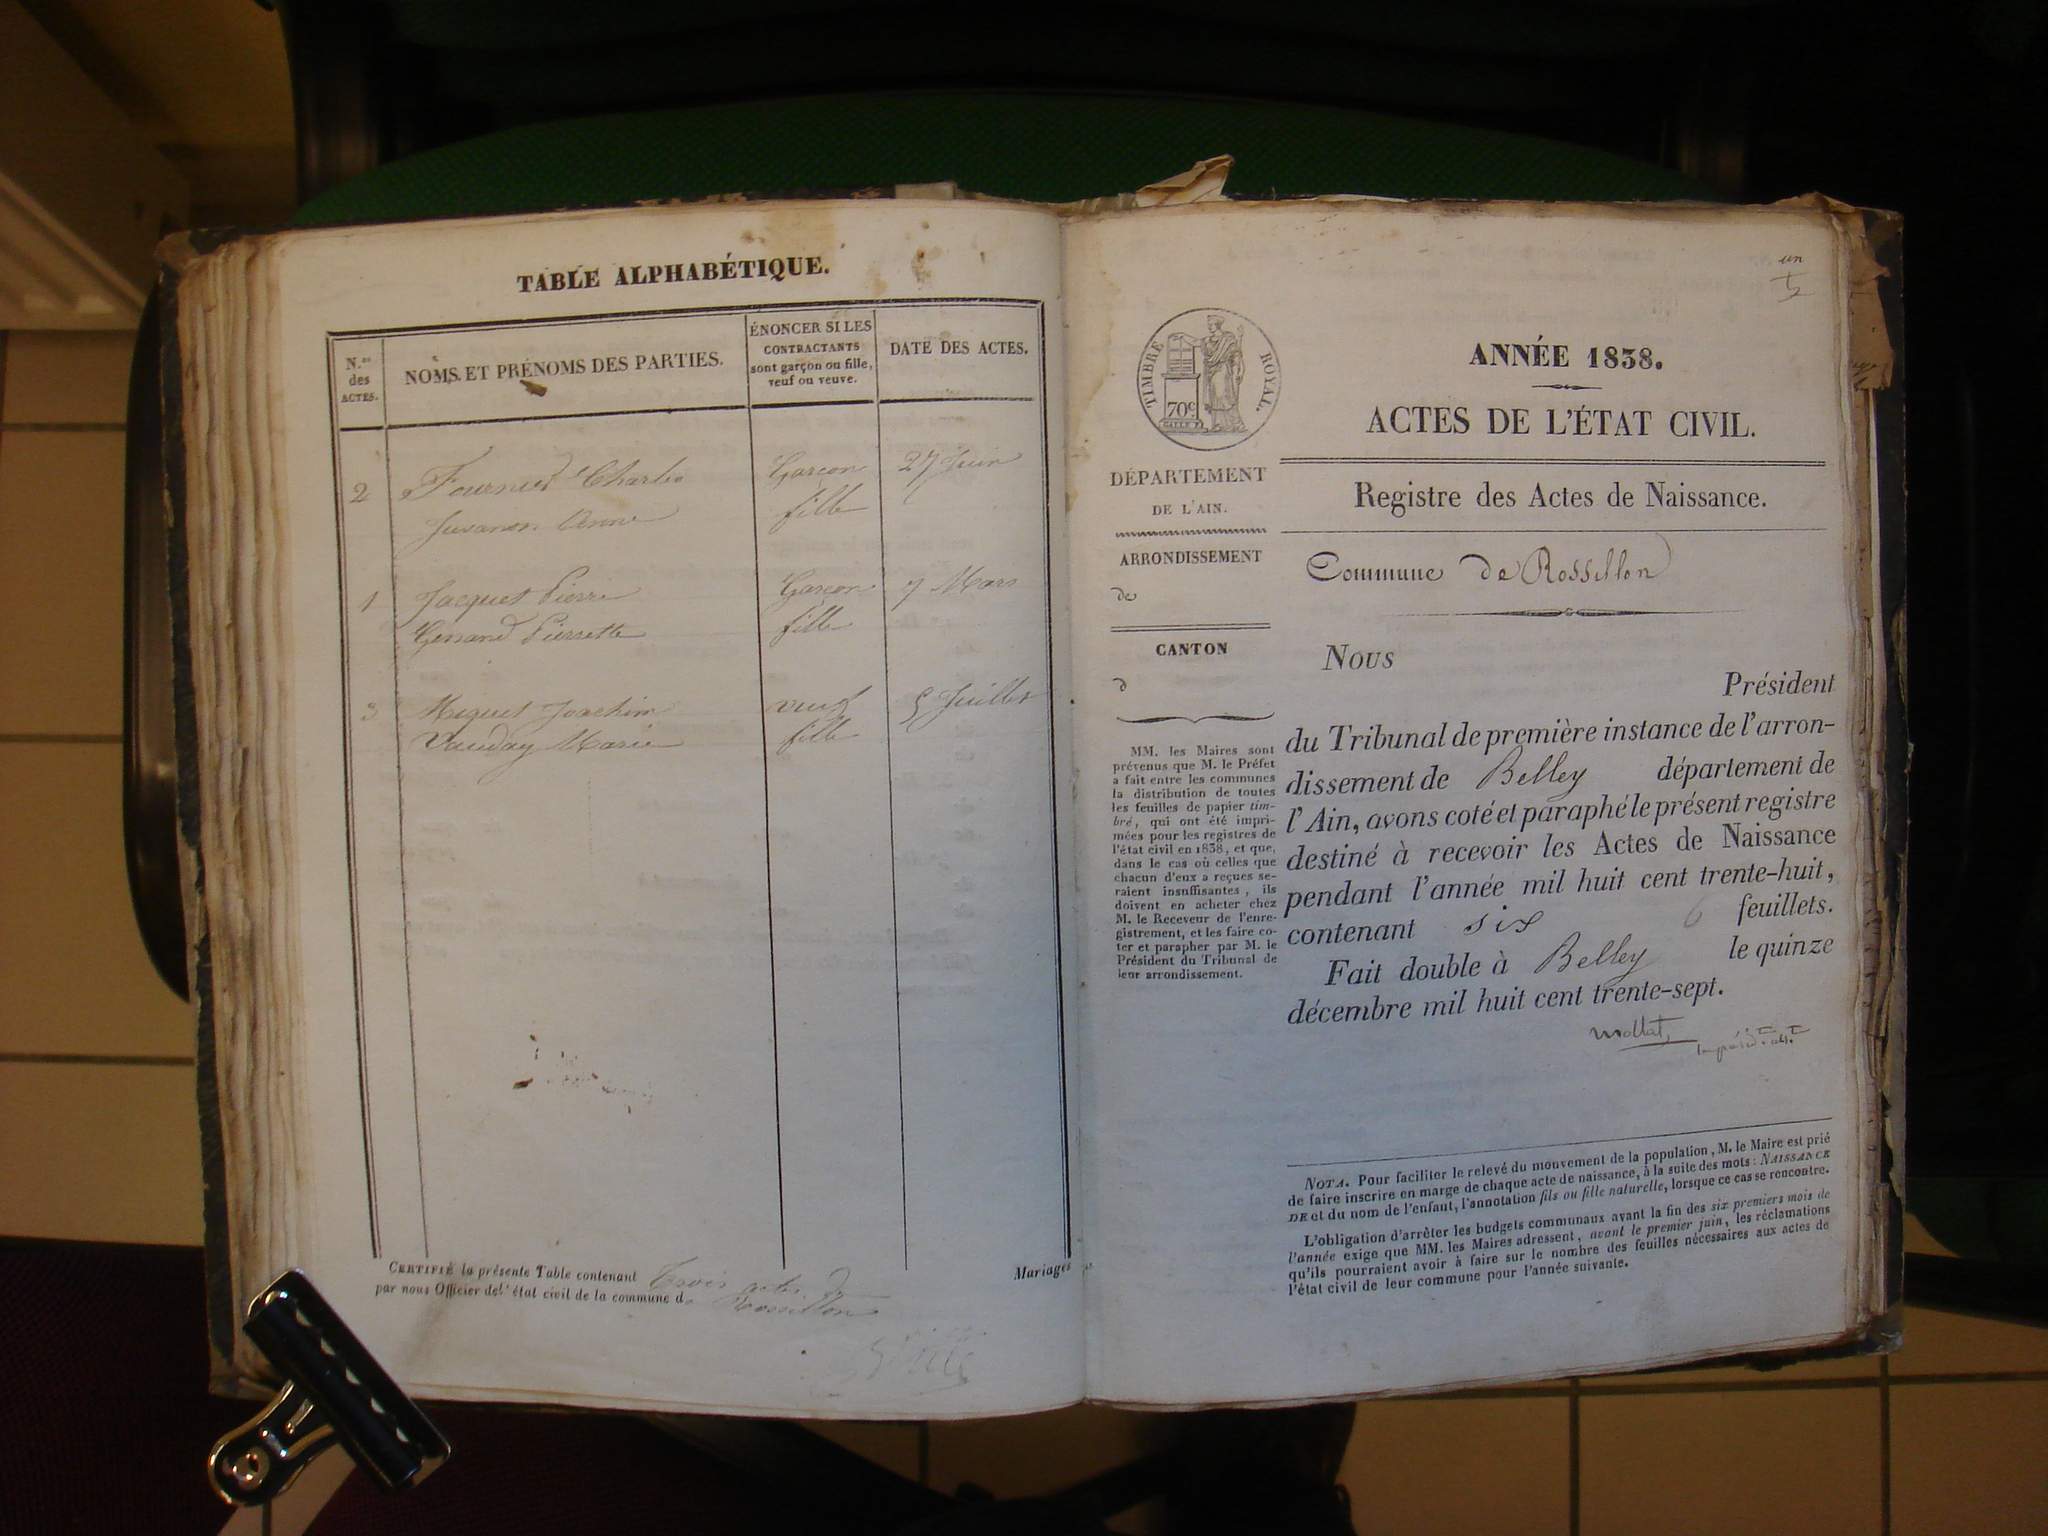 TABLE ALPHABÉTIQUE.
N.os
des
ACTES.
NOMS ET PRÉNOMS DES PARTIES.
ÉNONCER SI LES
CONTRACTANTS
sont garçon ou fille,
veuf ou veuve.
DATE DES ACTES.
2 Fournier Charles Garçon 27 Juin
Juvanon Anne fille
1 Jacquet Pierre Garçon 7 Mars
Pierrette fille
3 Miguet Joachim veuf 5 Juillet
Vauday Marie fille
CERTIFIÉ la présente Table contenant Trois actes de Mariages
par nous Officier de l'état civil de la commune de Rossillon
un
TIMBRE ROYAL.
70c
ANNÉE 1838.
ACTES DE L'ÉTAT CIVIL.
DÉPARTEMENT
DE L'AIN.
Registre des Actes de Naissance.
ARRONDISSEMENT
de
Commune de Rossillon
CANTON
d
MM. les Maires sont
prévenus que M. le Préfet
a fait entre les communes
la distribution de toutes
les feuilles de papier tim-
bré, qui ont été impri-
mées pour les registres de
l'état civil en 1838, et que,
dans le cas où celles que
chacun d'eux a reçues se-
raient insuffisantes, ils
doivent en acheter chez
M. le Receveur de l'enre-
gistrement, et les faire co-
ter et parapher par M. le
Président du Tribunal de
leur arrondissement.
Nous
Président
du Tribunal de première instance de l'arron-
dissement de Belley département de
l'Ain, avons coté et paraphé le présent registre
destiné à recevoir les Actes de Naissance
pendant l'année mil huit cent trente-huit,
contenant six 6 feuillets.
Fait double à Belley le quinze
décembre mil huit cent trente-sept.
mollat,
NOTA. Pour faciliter le relevé du mouvement de la population, M. le Maire est prié
de faire inscrire en marge de chaque acte de naissance, à la suite des mots : NAISSANCE
DE et du nom de l'enfant, l'annotation fils ou fille naturelle, lorsque ce cas se rencontre.
L'obligation d'arrêter les budgets communaux avant la fin des six premiers mois de
l'année exige que MM. les Maires adressent, avant le premier juin, les réclamations
qu'ils pourraient avoir à faire sur le nombre des feuilles nécessaires aux actes de
l'état civil de leur commune pour l'année suivante.